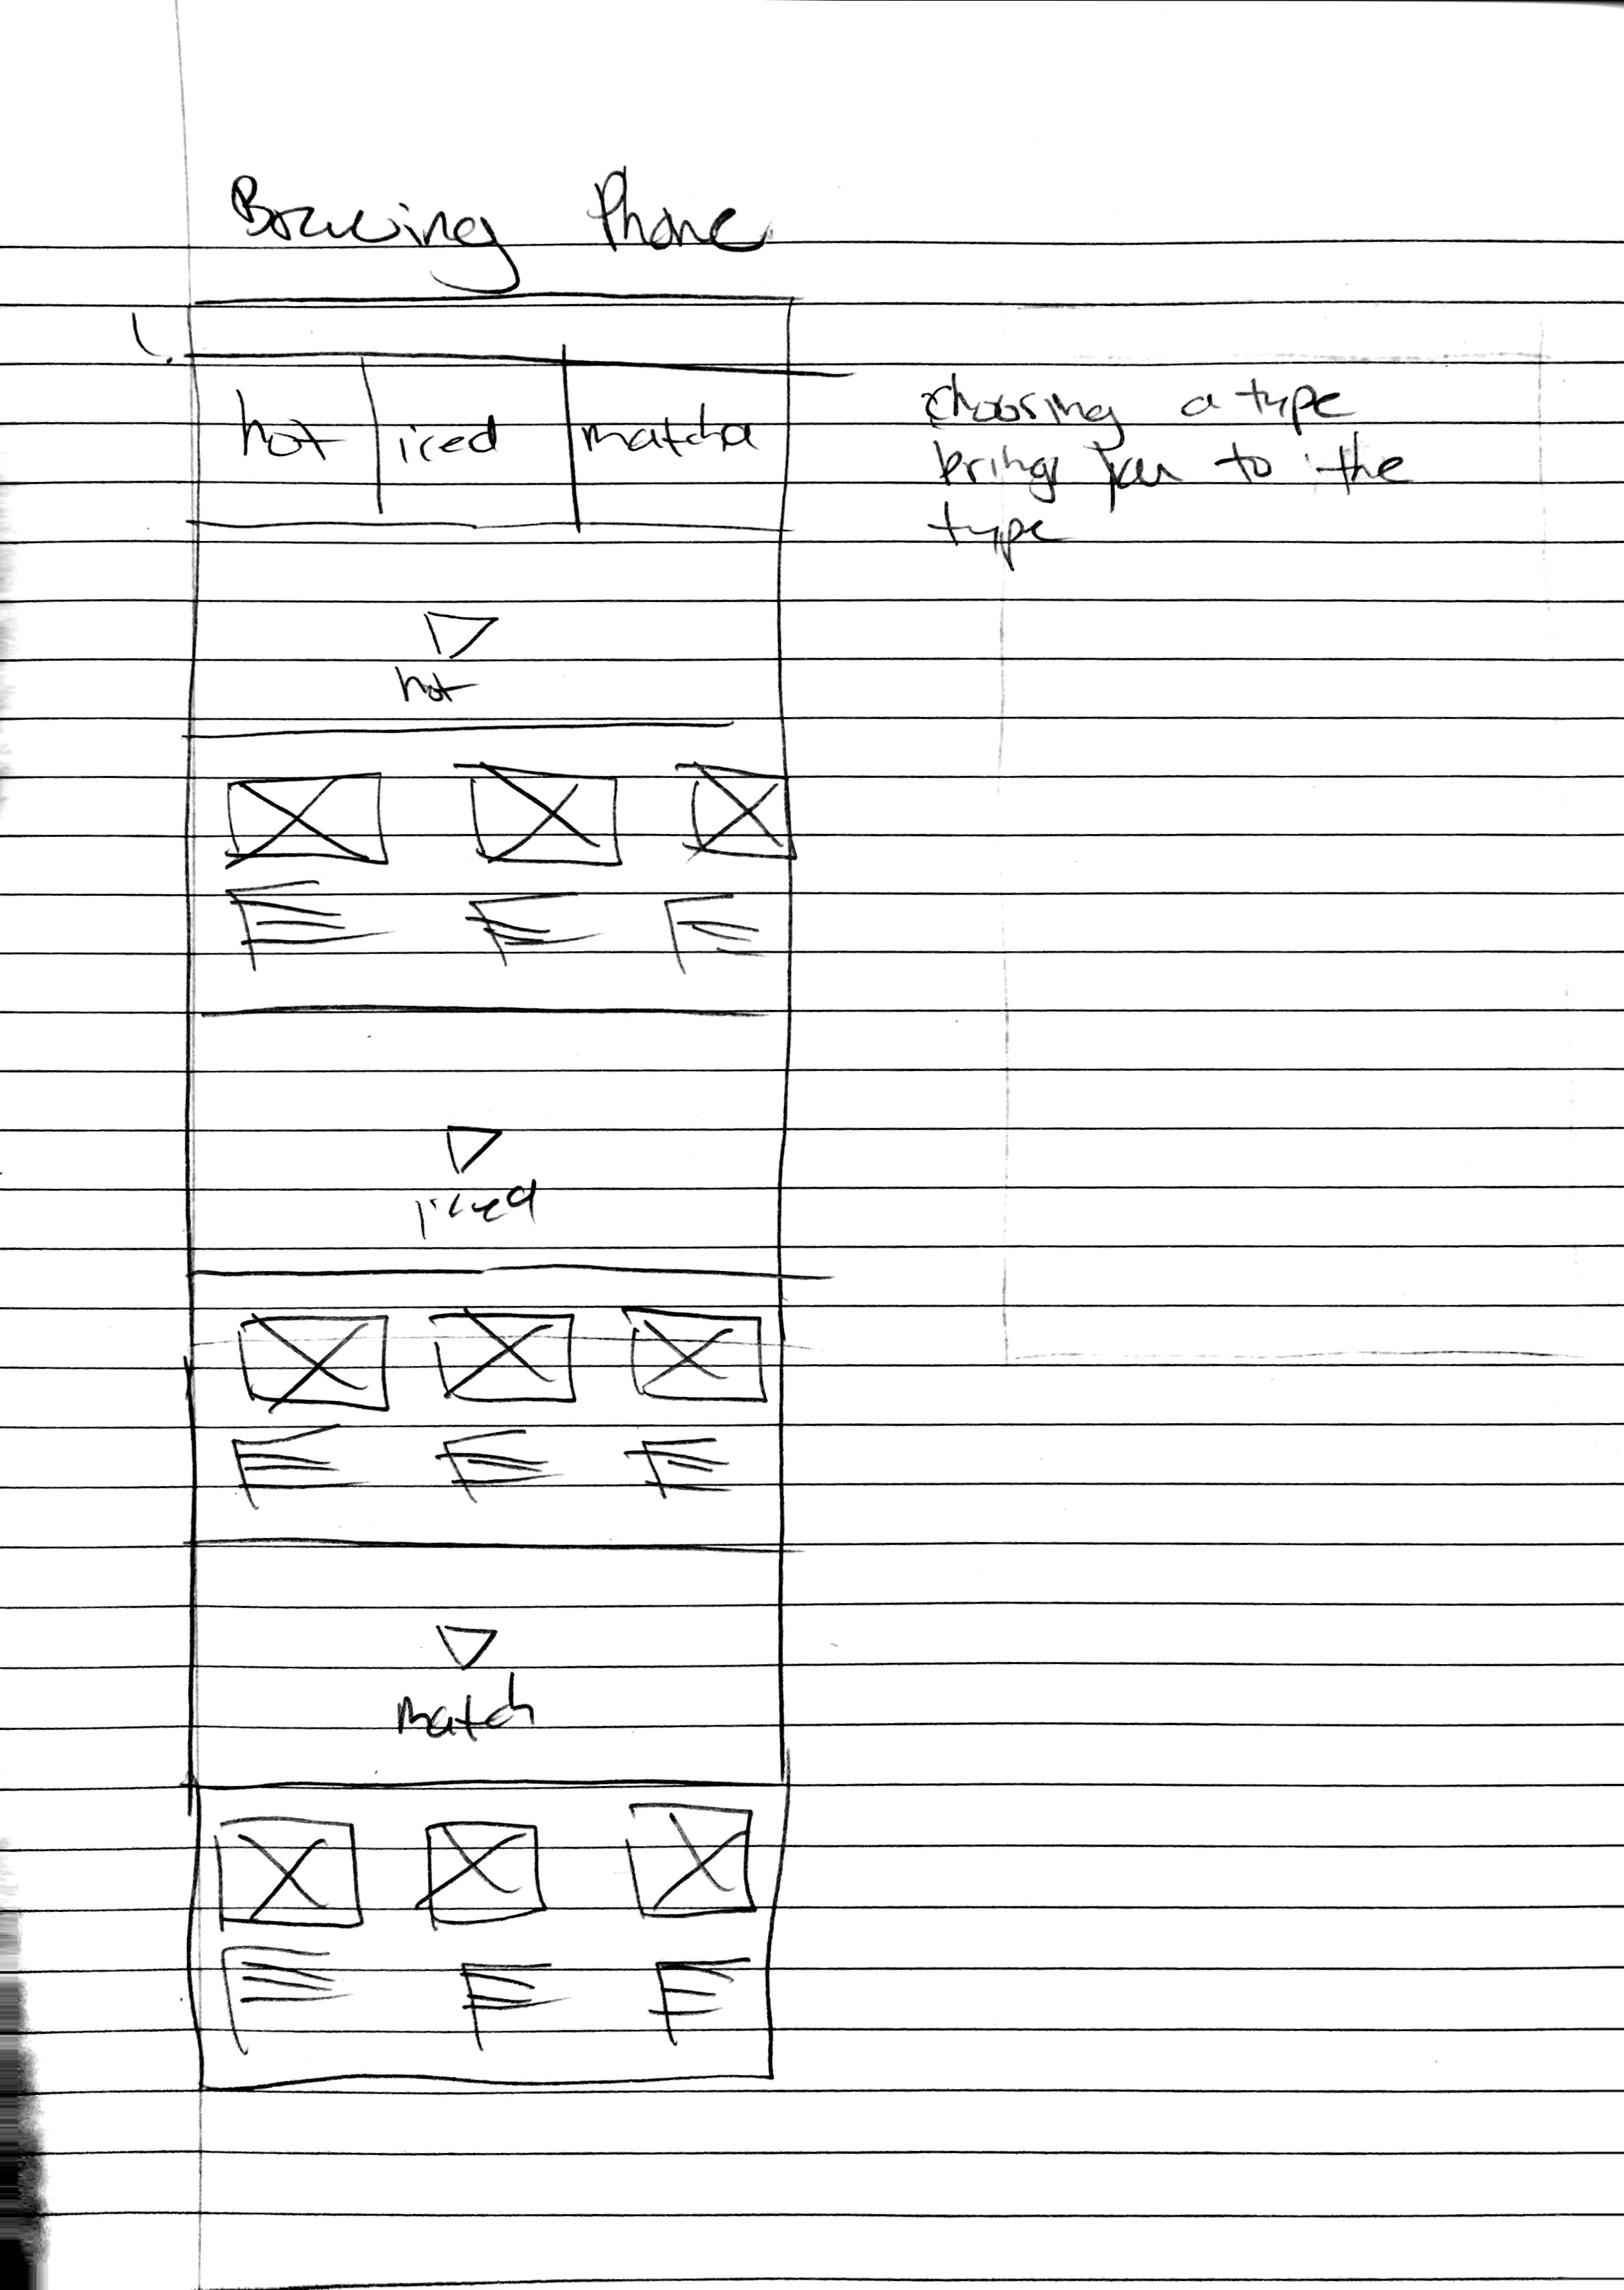 Phone
hot iced matcha
choosing a type
brings you to the
type
hot
iced
match